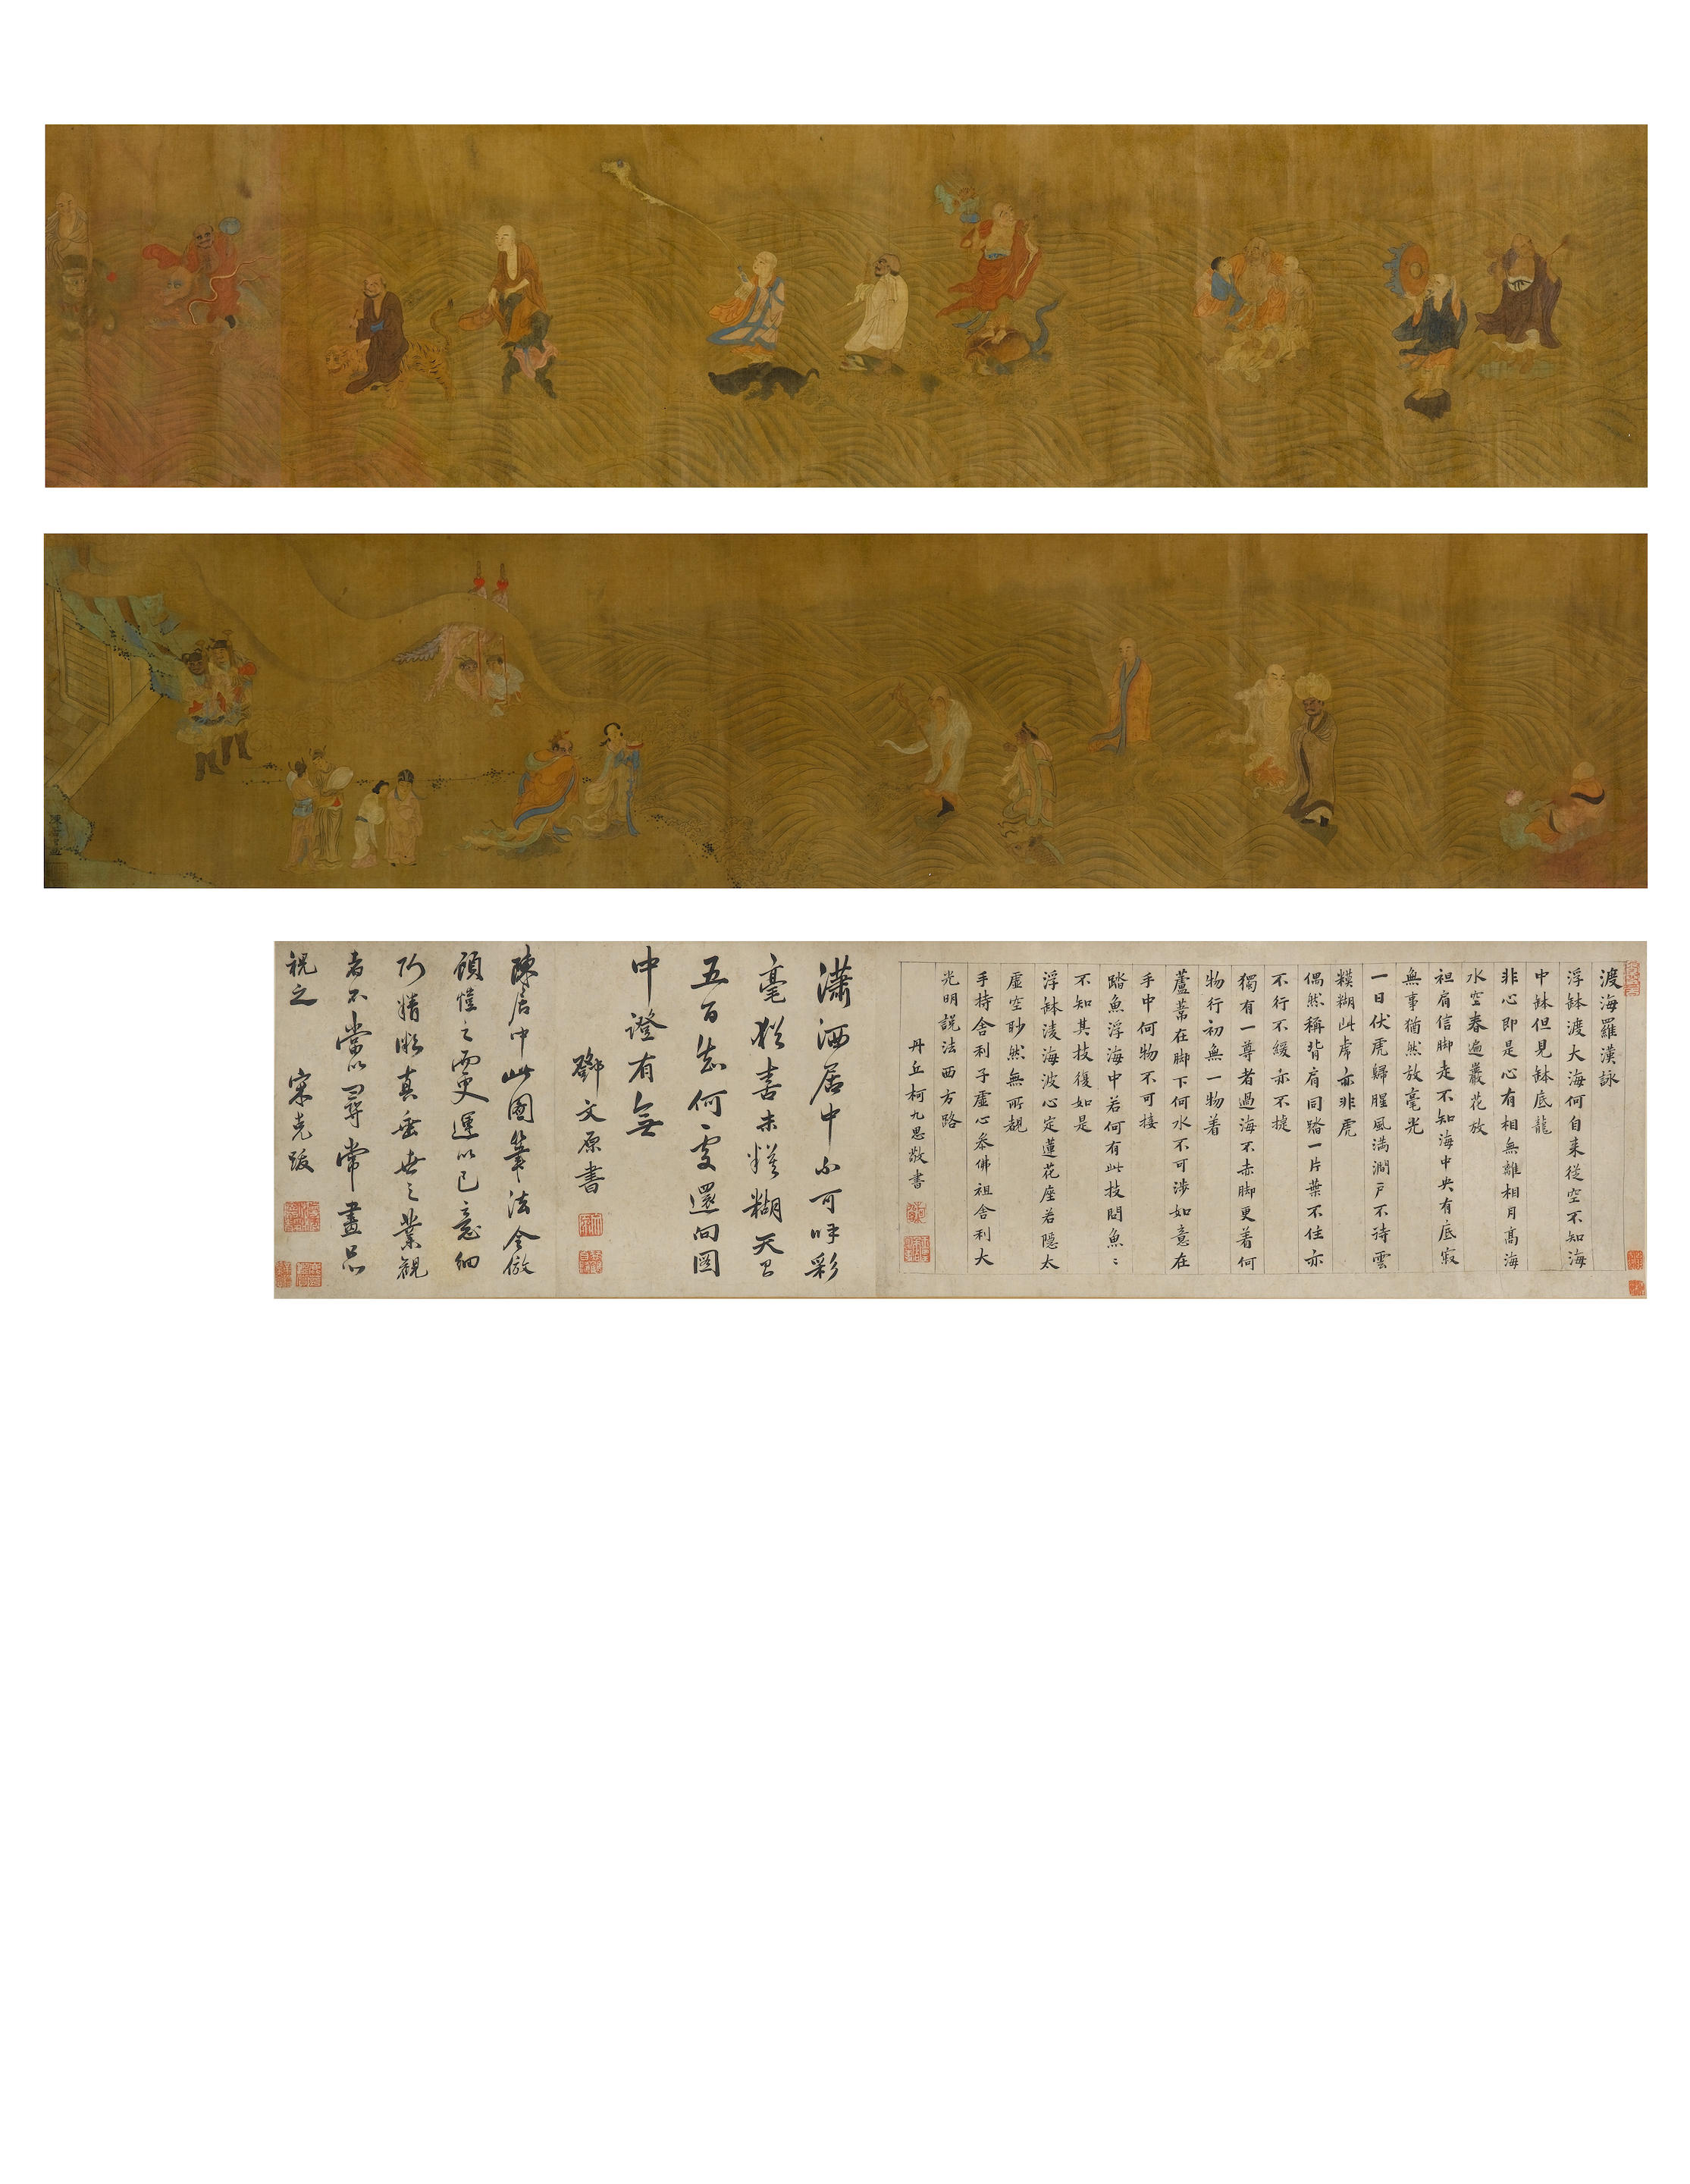 渡海羅漢詠
浮鉢渡大海何自来從空不知海
中鉢但見鉢底龍
非心即是心有相無離相月髙海
水空春遍巖花放
袒肩信脚走不知海中央有底寂
無事猶然放毫光
一日伏虎歸腥風满澗戸不待雲
糢糊此席亦非虎
偶然稱背肩同踏一片葉不住亦
不行不緩亦不捷
獨有一尊者過海不赤脚更着何
物行初無一物着
蘆葦在脚下何水不可渉如意在
手中何物不可接
踏魚浮海中若何有此技問魚ミ
不知其技復如是
浮鉢淩海波心定蓮花座若隱太
虚空眇然無所覩
手持舍利子虚心叅佛祖舍利大
光明説法西方路
丹丘柯九思敬書
瀟洒居中不可呼彩
毫猶喜未糢糊天台
五百知何處還向圖
中證有無
鄧文原書
陳居中此圖筆法全倣
顧愷之而更運以己意細
玩精微真垂世之業觀
者不當以尋常畫品
視之
宋克跋